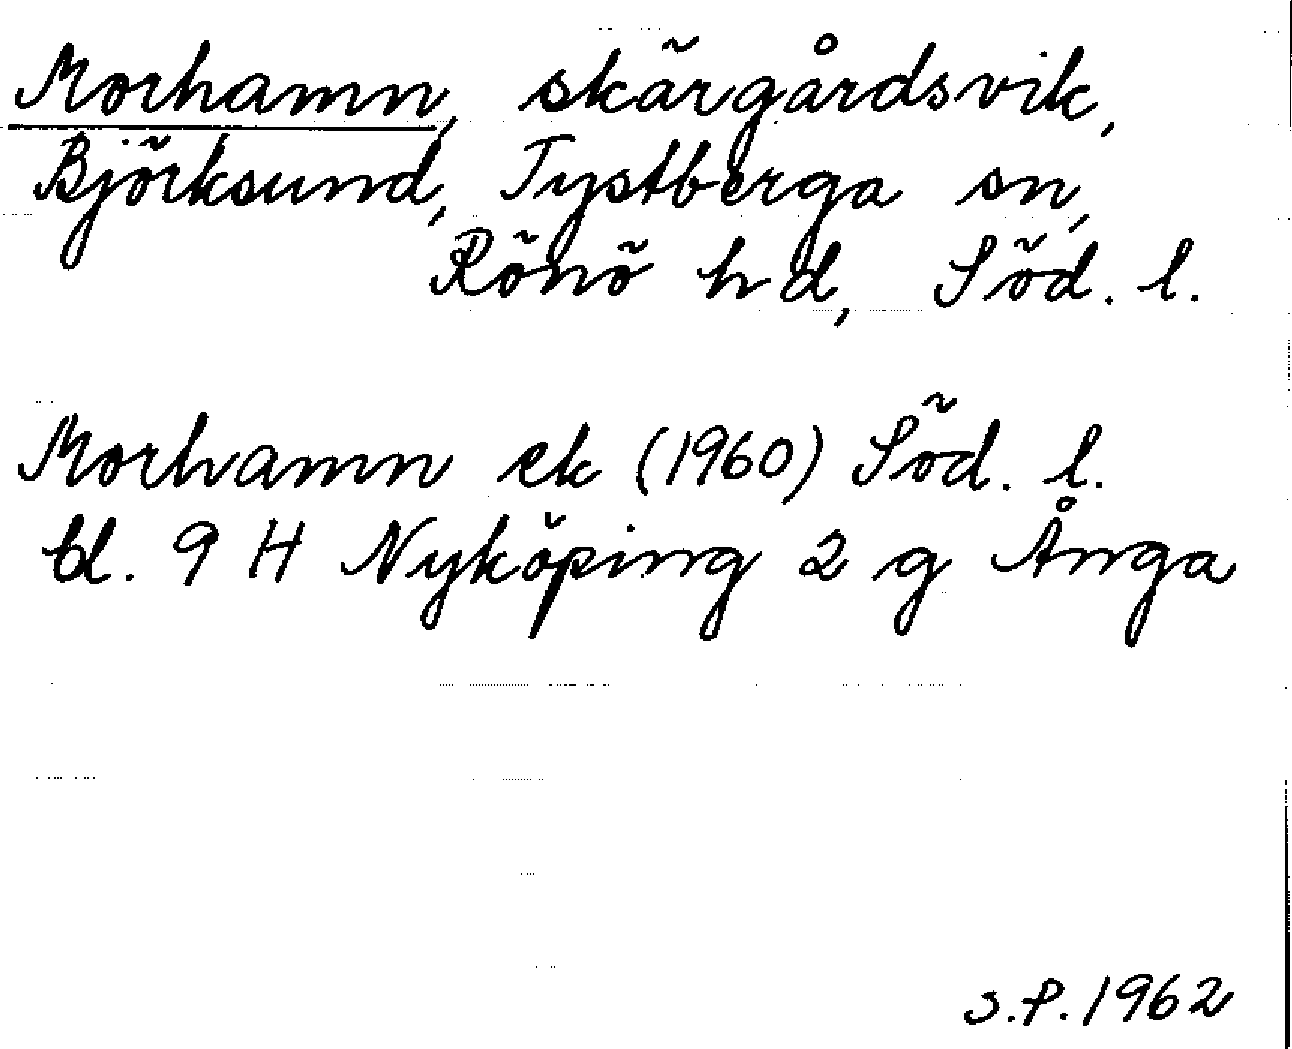 Morhamn, skärgårdsvik,
Björksund, Tystberga sn,
Rönö hd, Söd. l.
Morhamn ek (1960) Söd. l.
bl. 9 H Nyköping 2 g Ånga
S.P. 1962